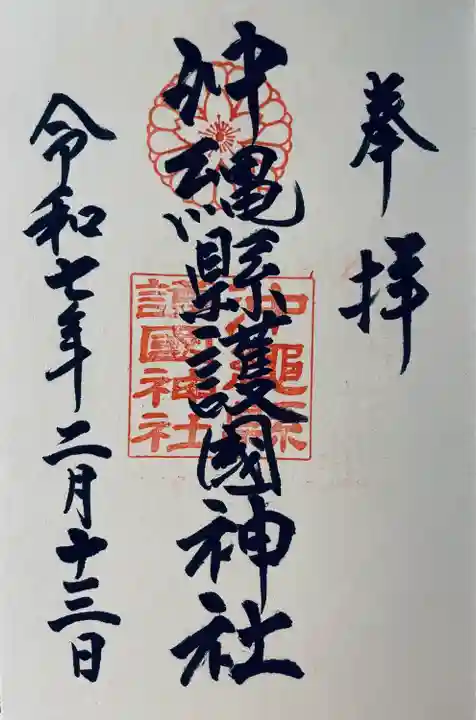 奉拝
沖縄縣護國神社
沖縄縣
護國神社
令和七年二月十三日